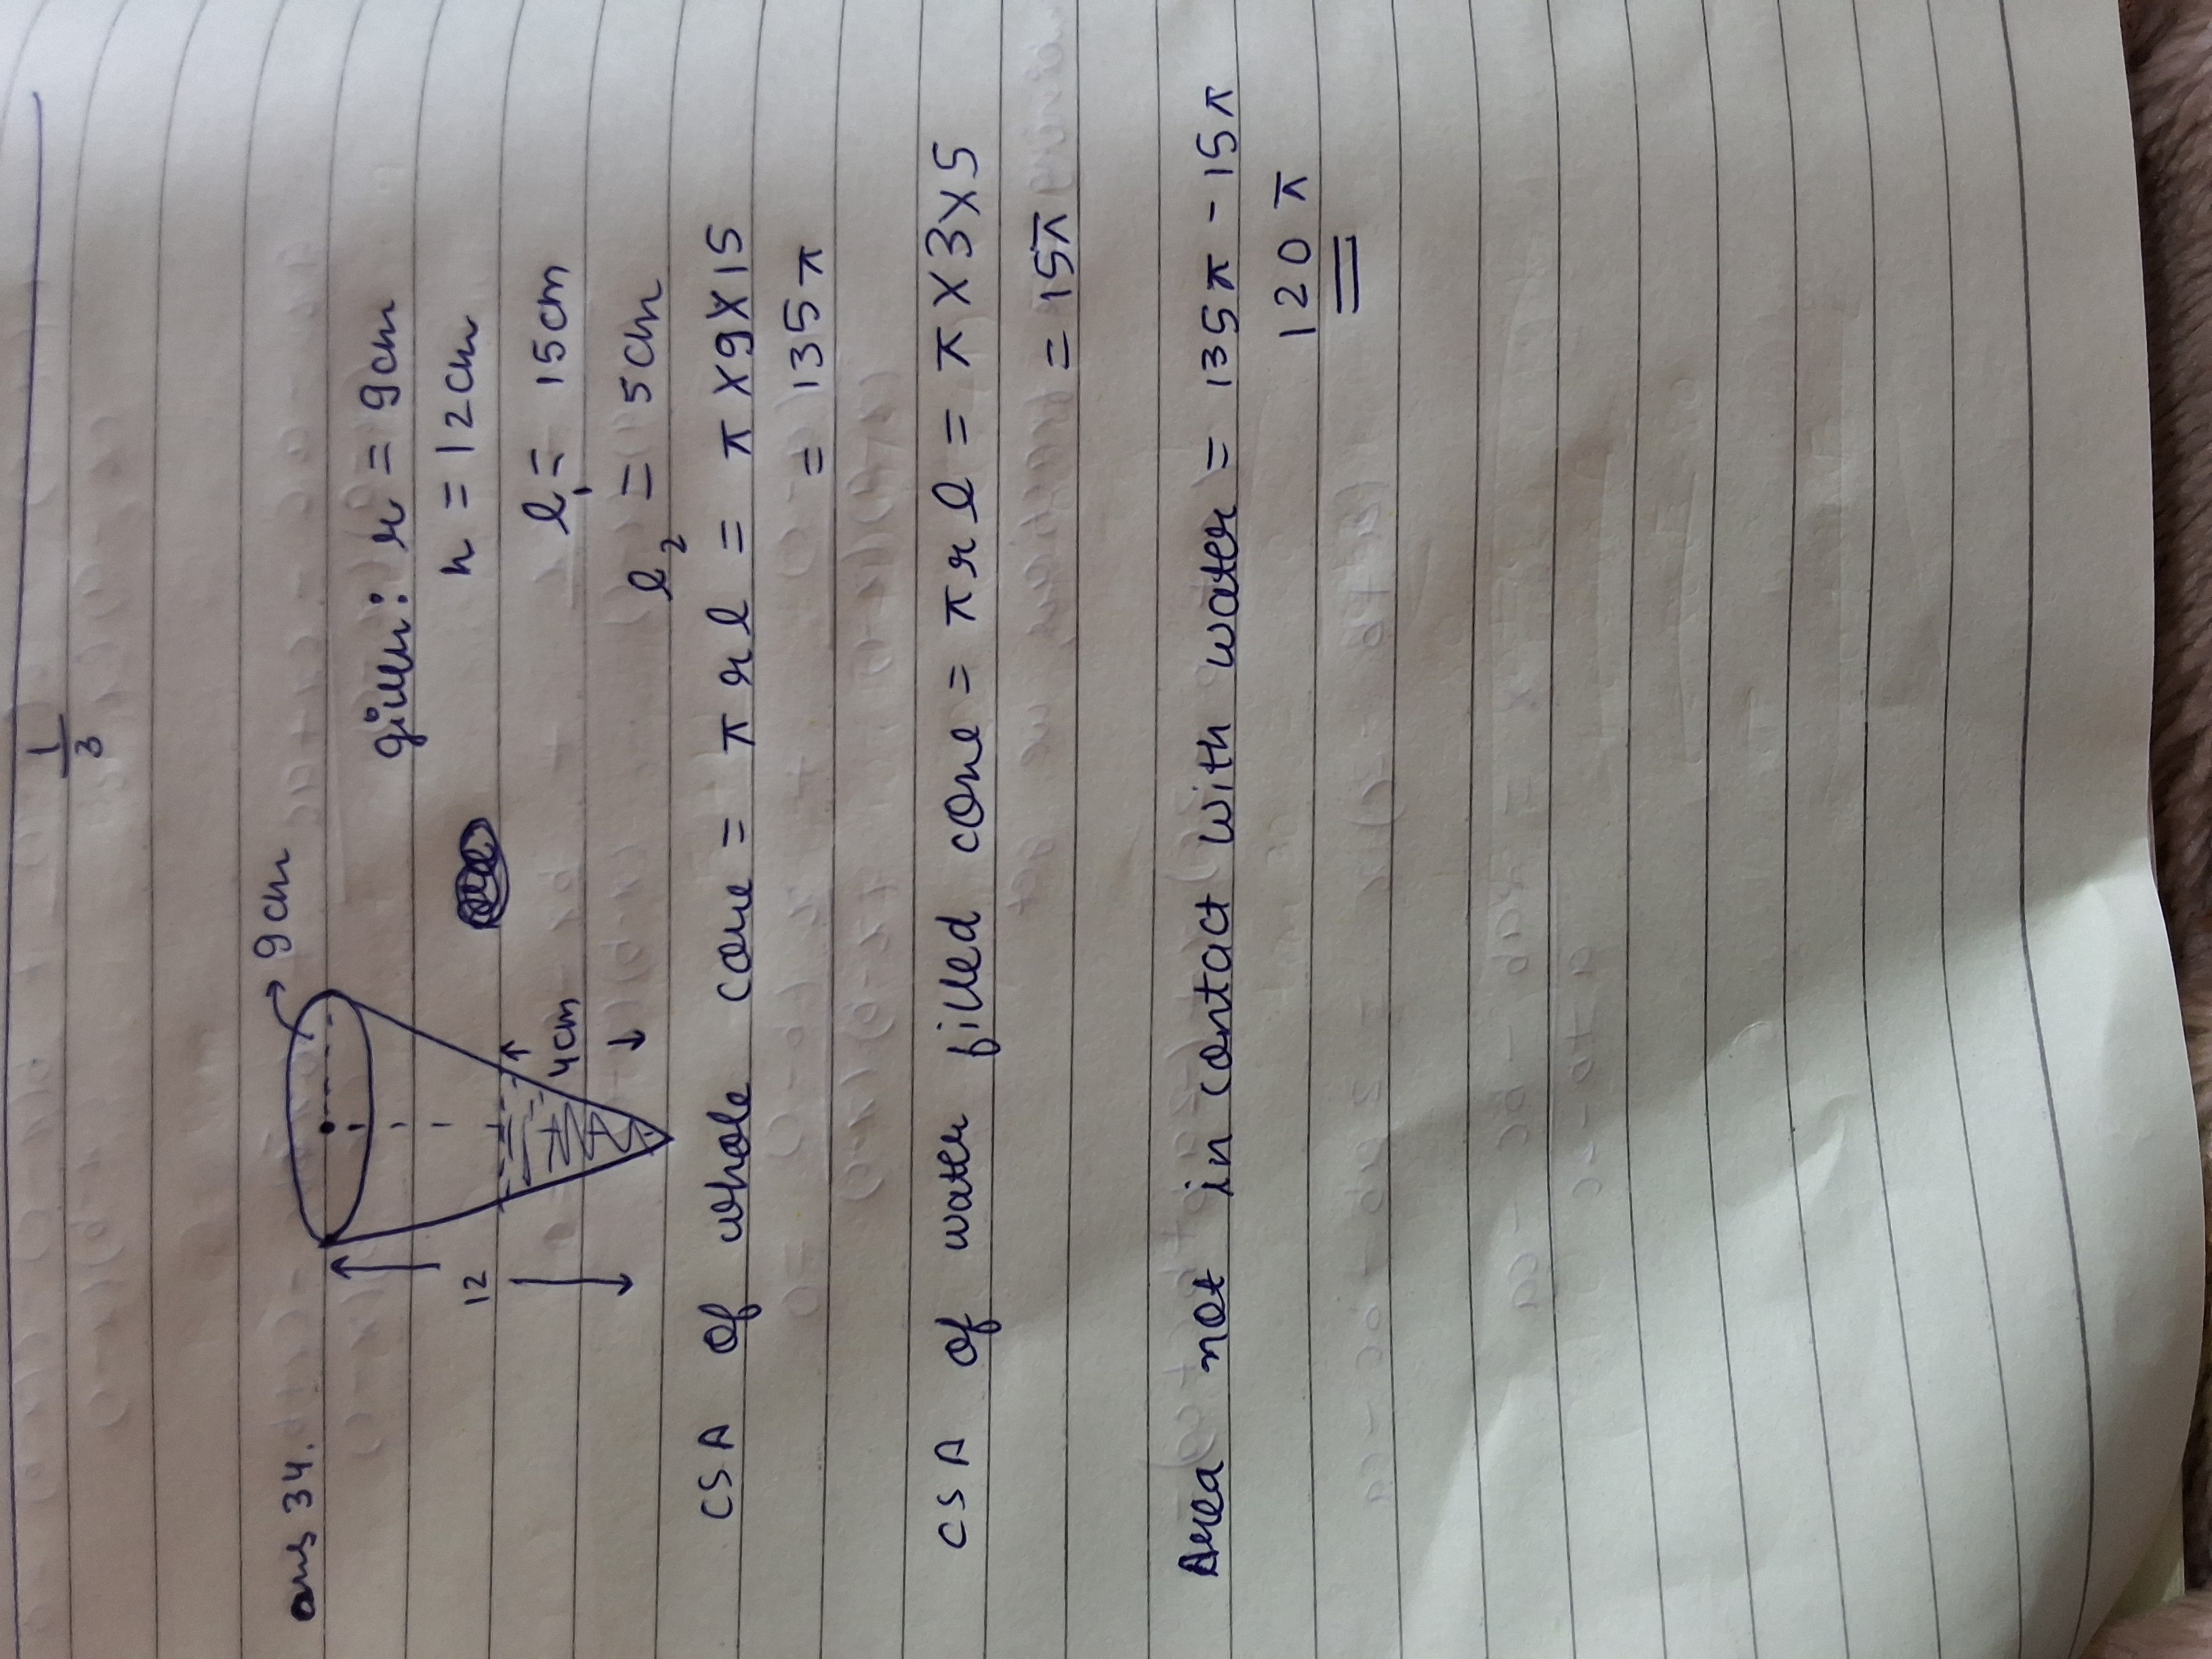 1
3
ans 34.
9cm
12
4cm
given: r = 9cm
h = 12cm
l₁ = 15cm
l₂ = 5cm
CSA of whole cone = πrl = π×9×15
= 135π
CSA of water filled cone = πrl = π×3×5
= 15π
Area not in contact with water = 135π - 15π
120π